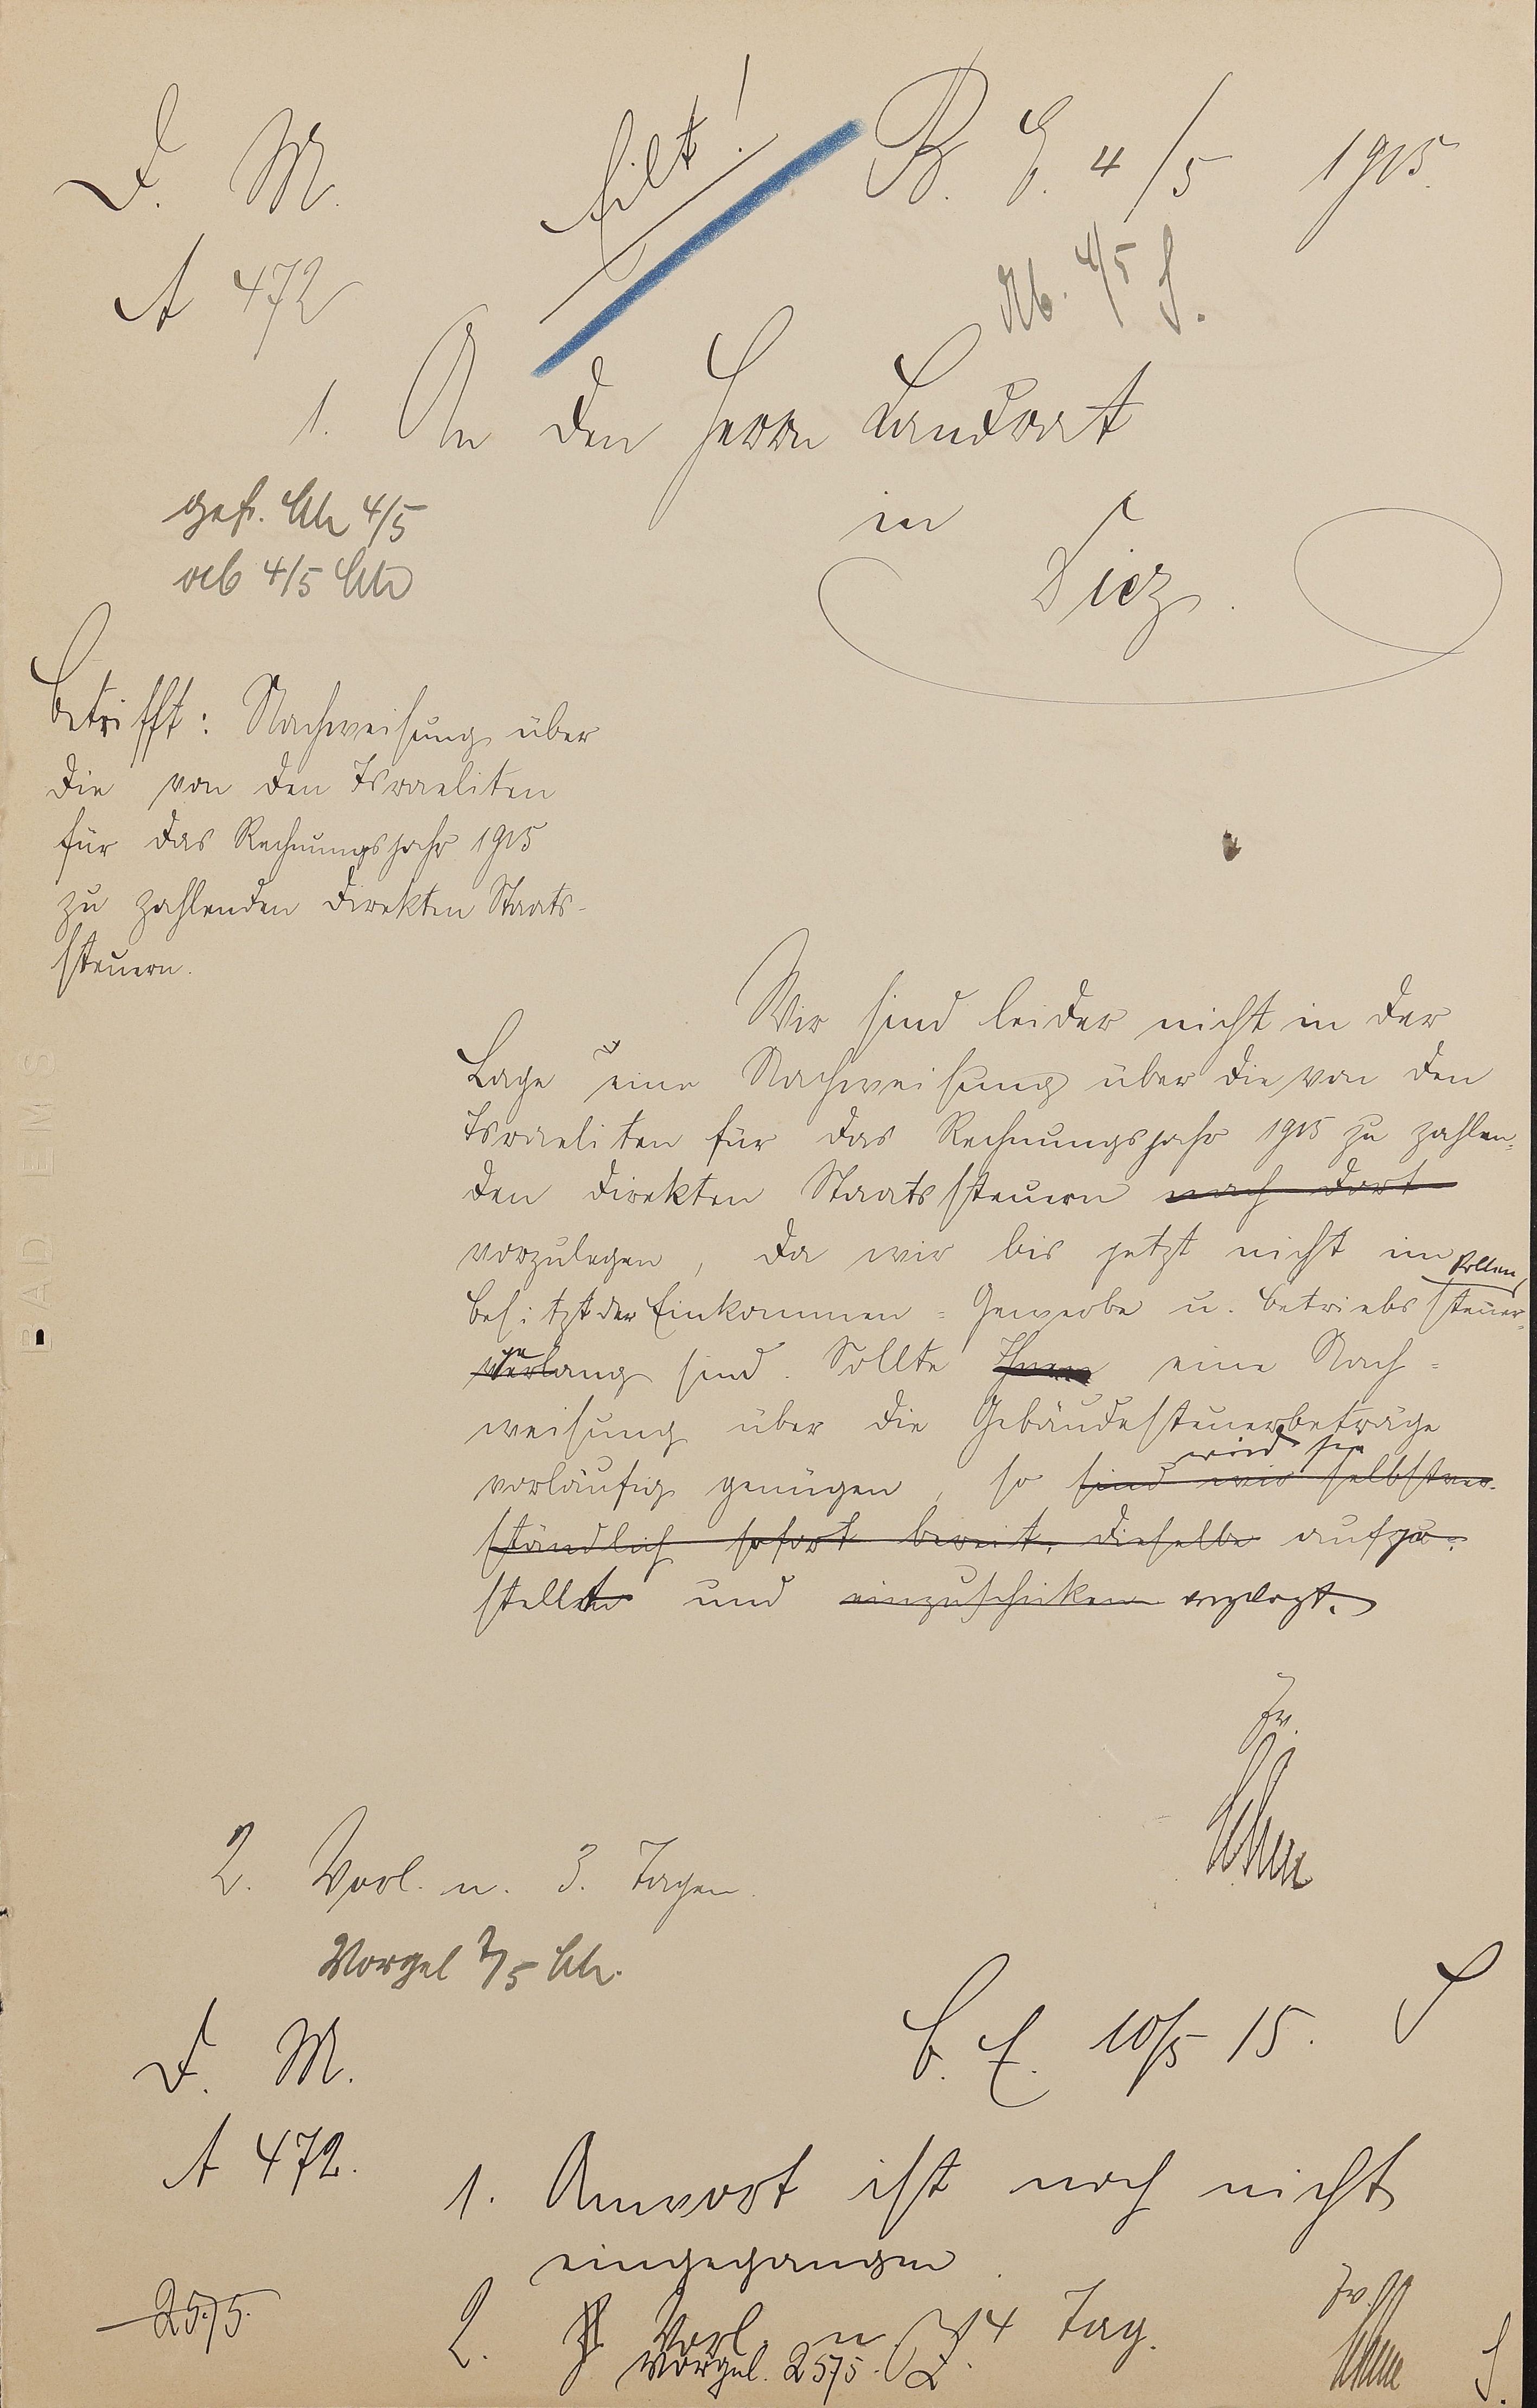 D. M.
Eilt!
B. E. 4/5 1915.
A 472
Ab. 4/5 S.
1. An den Herrn Landrat
in
Diez.
gef. 4/5
ab 4/5
Betrifft: Nachweisung über
die von den Israeliten
für das Rechnungsjahr 1915
zu zahlenden direkten Staats-
steuern.
BAD EMS
Wir sind leider nicht in der
Lage eine Nachweisung über die von den
Israeliten für das Rechnungsjahr 1915 zu zahlen=
den direkten Staatssteuern nach dort
vorzulegen, da wir bis jetzt nicht im
Besitzt der Einkommen= Gewerbe u. Betriebssteuer=
rollen
sind. Sollte Ihnen eine Nach=
weisung über die Gebäudesteuerbeträge
wird sie
vorläufig genügen, so sind wir selbstver-
ständlich sofort bereit, dieselbe aufzu-
stellen und einzuschicken vorgelegt.
2. Vorl. n. 3. Tagen.
Vorgel 7/5
D. M.
B. E. 10/5 15.
A 472.
1. Antwort ist noch nicht
eingegangen.
25/5.
2. Vorl. n 14 Tag.
Vorgel. 25/5.